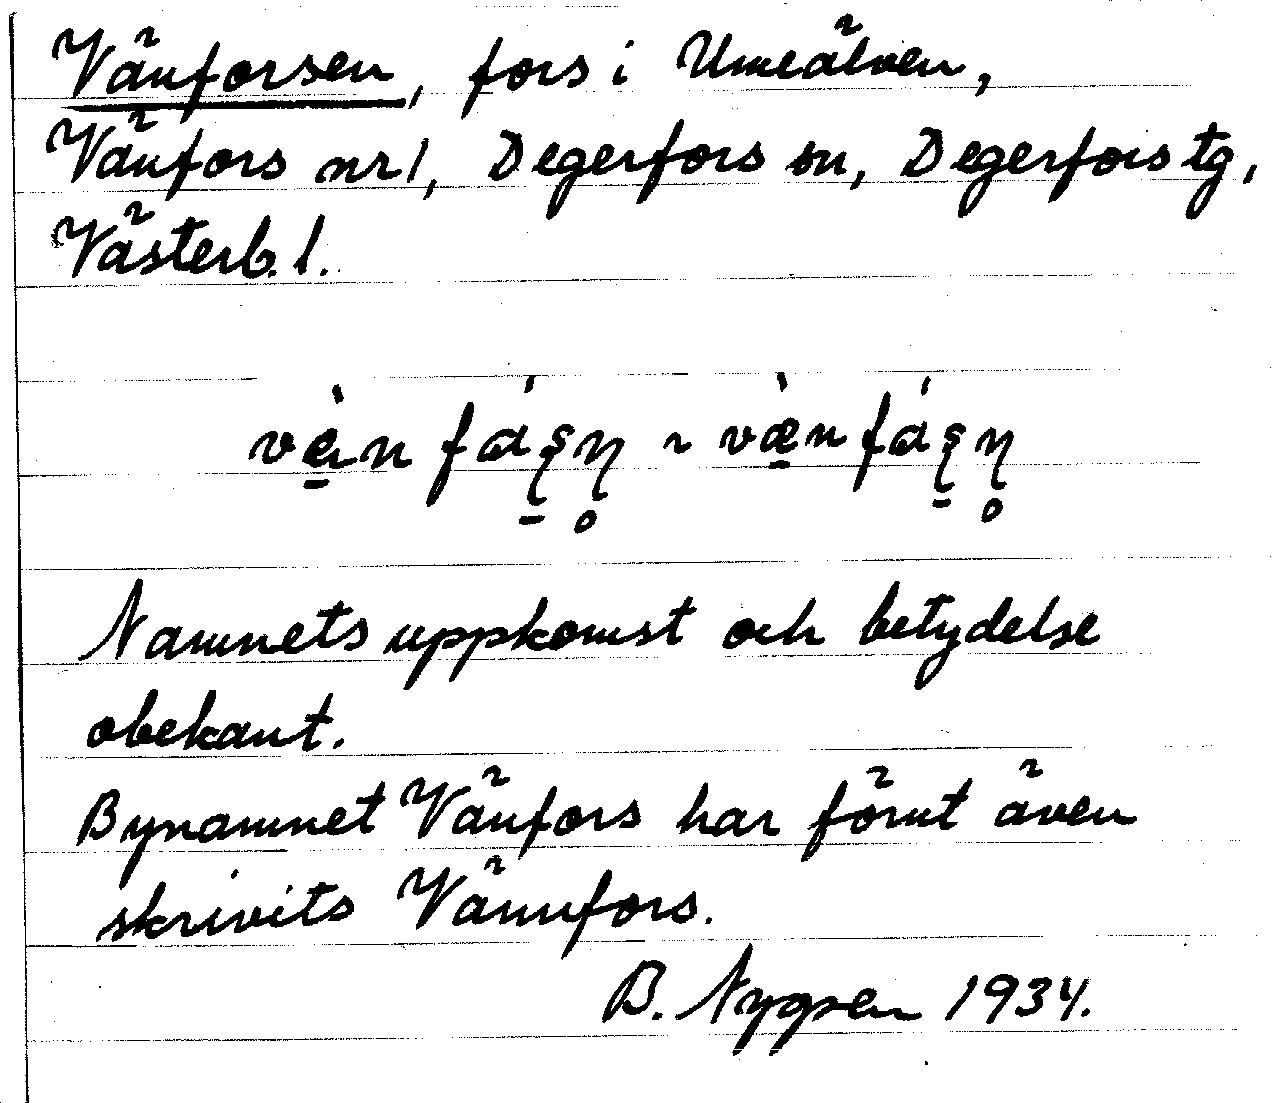 Vänforsen, fors i Umeälven,
Vänfors nr 1, Degerfors sn, Degerfors tg,
Västerb. l.
Namnets uppkomst och betydelse
obekant.
Bynamnet Vänfors har förut även
skrivits Vännfors.
B. 1934.